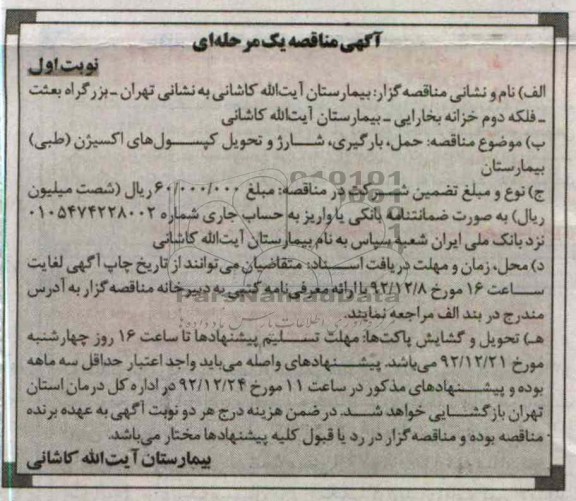 آگهی مناقصه یک مرحله‌ای
نوبت اول
الف) نام و نشانی مناقصه گزار: بیمارستان آیت‌الله کاشانی به نشانی تهران - بزرگراه بعثت
- فلکه دوم خزانه بخارایی - بیمارستان آیت‌الله کاشانی
ب) موضوع مناقصه: حمل، بارگیری، شارژ و تحویل کپسول‌های اکسیژن (طبی)
بیمارستان
ج) نوع و مبلغ تضمین شرکت در مناقصه: مبلغ ۶۰/۰۰۰/۰۰۰ ریال (شصت میلیون
ریال) به صورت ضمانتنامه بانکی یا واریز به حساب جاری شماره ۰۱۰۵۴۷۴۲۲۸۰۰۲
نزد بانک ملی ایران شعبه سپاس به نام بیمارستان آیت‌الله کاشانی
د) محل، زمان و مهلت دریافت اسناد: متقاضیان می‌توانند از تاریخ چاپ آگهی لغایت
ساعت ۱۶ مورخ ۹۲/۱۲/۸ با ارائه معرفی‌نامه کتبی به دبیرخانه مناقصه گزار به آدرس
مندرج در بند الف مراجعه نمایند.
ParsNamadData
هـ) تحویل و گشایش پاکت‌ها: مهلت تسلیم پیشنهادها تا ساعت ۱۶ روز چهارشنبه
مورخ ۹۲/۱۲/۲۱ می‌باشد. پیشنهادهای واصله می‌باید واجد اعتبار حداقل سه ماهه
بوده و پیشنهادهای مذکور در ساعت ۱۱ مورخ ۹۲/۱۲/۲۴ در اداره کل درمان استان
تهران بازگشایی خواهد شد. در ضمن هزینه درج هر دو نوبت آگهی به عهده برنده
مناقصه بوده و مناقصه گزار در رد یا قبول کلیه پیشنهادها مختار می‌باشد.
بیمارستان آیت‌الله کاشانی